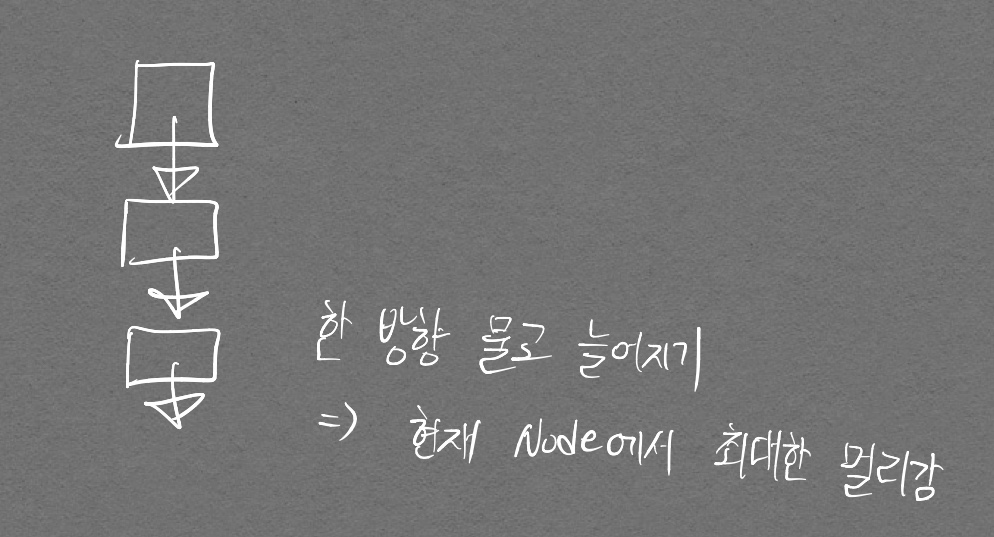 한 방향 물고 늘어지기
=> 현재 Node에서 최대한 멀리감